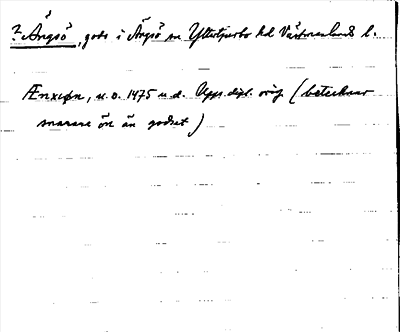 ? Ängsö, gods i Ängsö sn Yttertjurbo hd Västmanlands l.
Ænxøn, u.o. 1475 u.d. Upps. dipl. orig. (betecknar
snarare ön än godset)